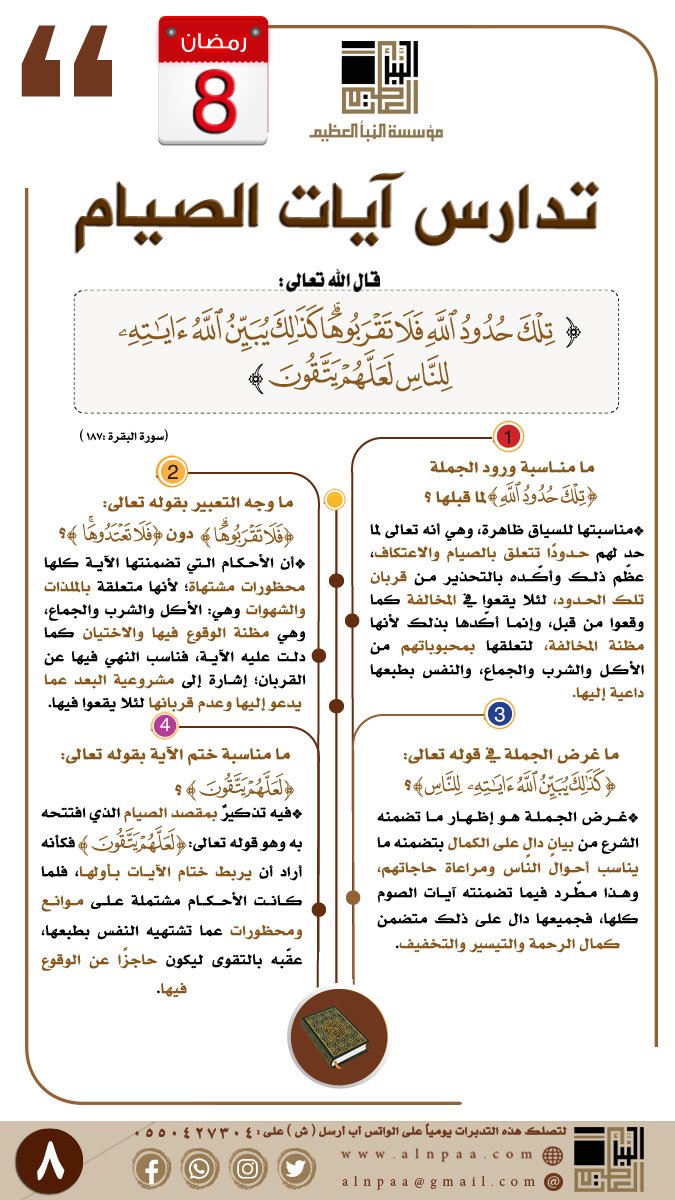 رمضان
8
مؤسسة النبأ العظيم
تدارس آيات الصيام
قال الله تعالى:
﴿ تِلْكَ حُدُودُ ٱللَّهِ فَلَا تَقْرَبُوهَا ۗ كَذَٰلِكَ يُبَيِّنُ ٱللَّهُ ءَايَـٰتِهِۦ
لِلنَّاسِ لَعَلَّهُمْ يَتَّقُونَ ﴾
(سورة البقرة :١٨٧)
1
ما مناسبة ورود الجملة
﴿تِلْكَ حُدُودُ ٱللَّهِ﴾ لما قبلها ؟
❖مناسبتها للسياق ظاهرة، وهي أنه تعالى لما
حد لهم حدودًا تتعلق بالصيام والاعتكاف،
عظّم ذلك وأكّده بالتحذير من قربان
تلك الحدود، لئلا يقعوا في المخالفة كما
وقعوا من قبل، وإنما أكّدها بذلك لأنها
مظنة المخالفة، لتعلقها بمحبوباتهم من
الأكل والشرب والجماع، والنفس بطبعها
داعية إليها.
2
ما وجه التعبير بقوله تعالى:
﴿فَلَا تَقْرَبُوهَا ۗ﴾ دون ﴿فَلَا تَعْتَدُوهَا ۚ﴾ ؟
❖أن الأحكام التي تضمنتها الآية كلها
محظورات مشتهاة؛ لأنها متعلقة بالملذات
والشهوات وهي: الأكل والشرب والجماع،
وهي مظنة الوقوع فيها والاختيان كما
دلت عليه الآية، فناسب النهي فيها عن
القربان؛ إشارة إلى مشروعية البعد عما
يدعو إليها وعدم قربانها لئلا يقعوا فيها.
3
ما غرض الجملة في قوله تعالى:
﴿كَذَٰلِكَ يُبَيِّنُ ٱللَّهُ ءَايَـٰتِهِۦ لِلنَّاسِ﴾ ؟
❖غرض الجملة هو إظهار ما تضمنه
الشرع من بيانٍ دالٍ على الكمال بتضمنه ما
يناسب أحوال النّاس ومراعاة حاجاتهم،
وهذا مطّرد فيما تضمنته آيات الصوم
كلها، فجميعها دال على ذلك متضمن
كمال الرحمة والتيسير والتخفيف.
4
ما مناسبة ختم الآية بقوله تعالى:
﴿لَعَلَّهُمْ يَتَّقُونَ﴾ ؟
❖فيه تذكيرٌ بمقصد الصيام الذي افتتحه
به وهو قوله تعالى: ﴿لَعَلَّهُمْ يَتَّقُونَ﴾ فكأنه
أراد أن يربط ختام الآيات بأولها، فلما
كانت الأحكام مشتملة على موانع
ومحظورات عما تشتهيه النفس بطبعها،
عقّبه بالتقوى ليكون حاجزًا عن الوقوع
فيها.
لتصلك هذه التدبرات يومياً على الواتس آب أرسل ( ش ) على : ٠٥٥٠٤٢٧٣٠٤
www.alnpaa.com
alnpaa@gmail.com
٨